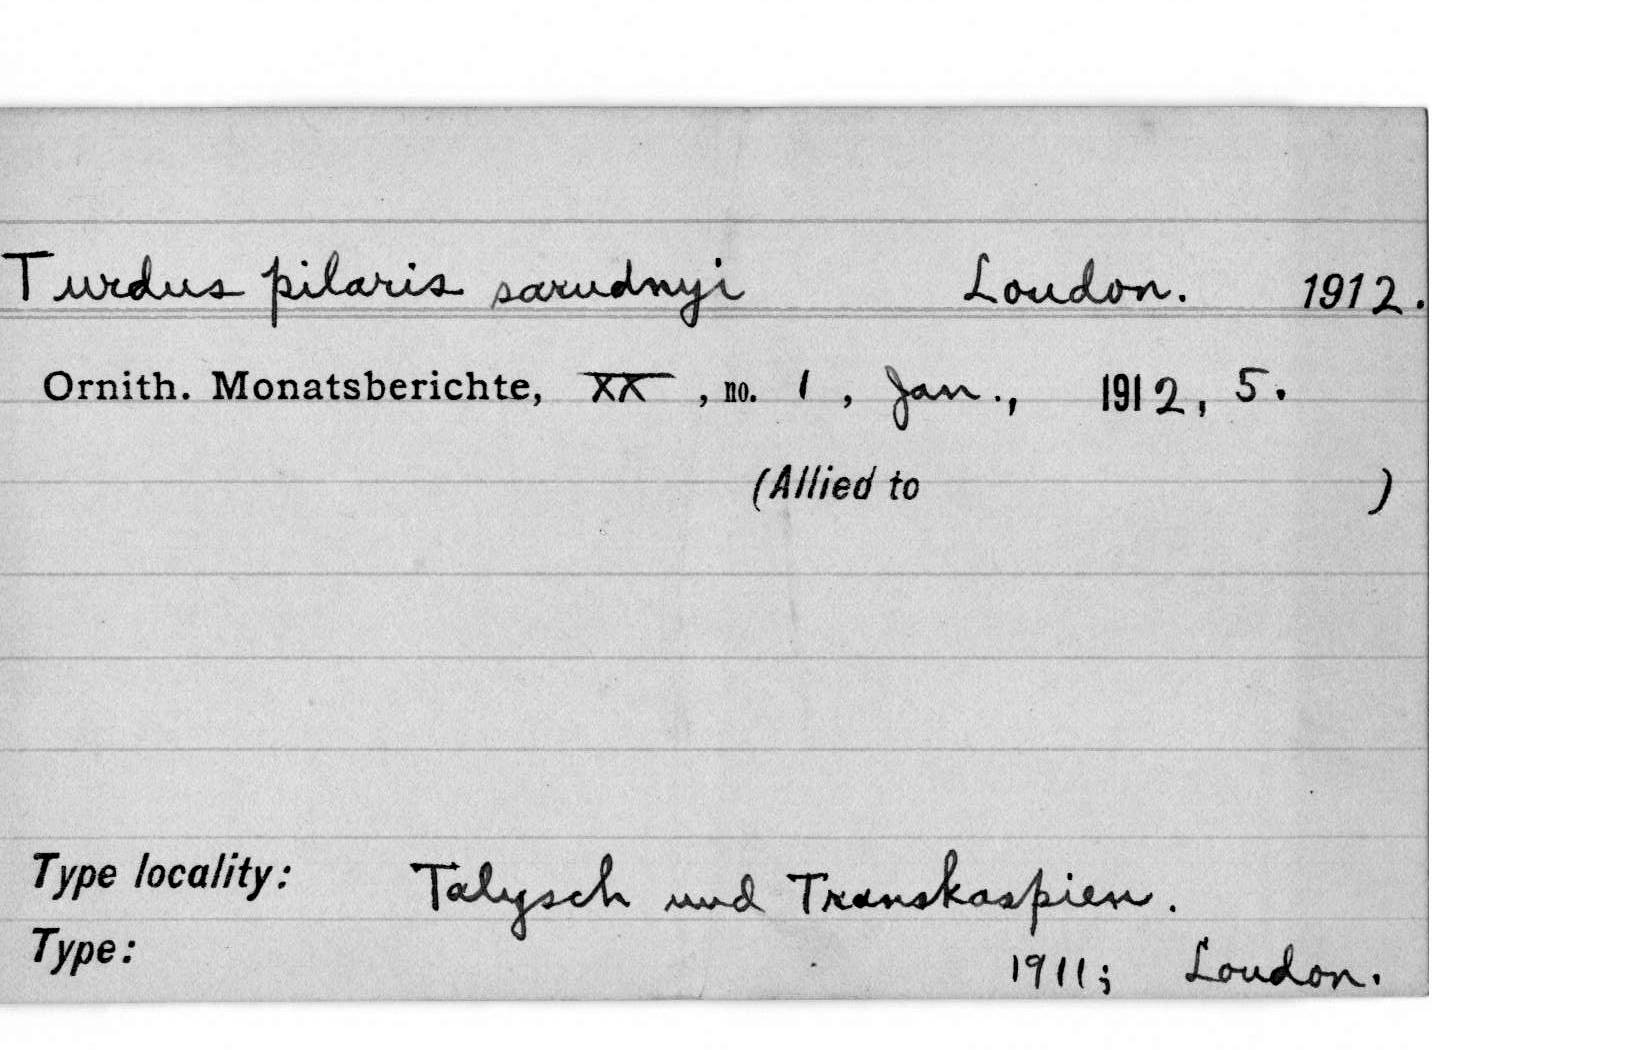 Turdus pilaris sarudnyi Loudon. 1912.
Ornith. Monatsberichte, XX, no. 1, Jan., 1912, 5.
(Allied to )
Type locality: Talysch und Transkaspien.
Type: 1911; Loudon.